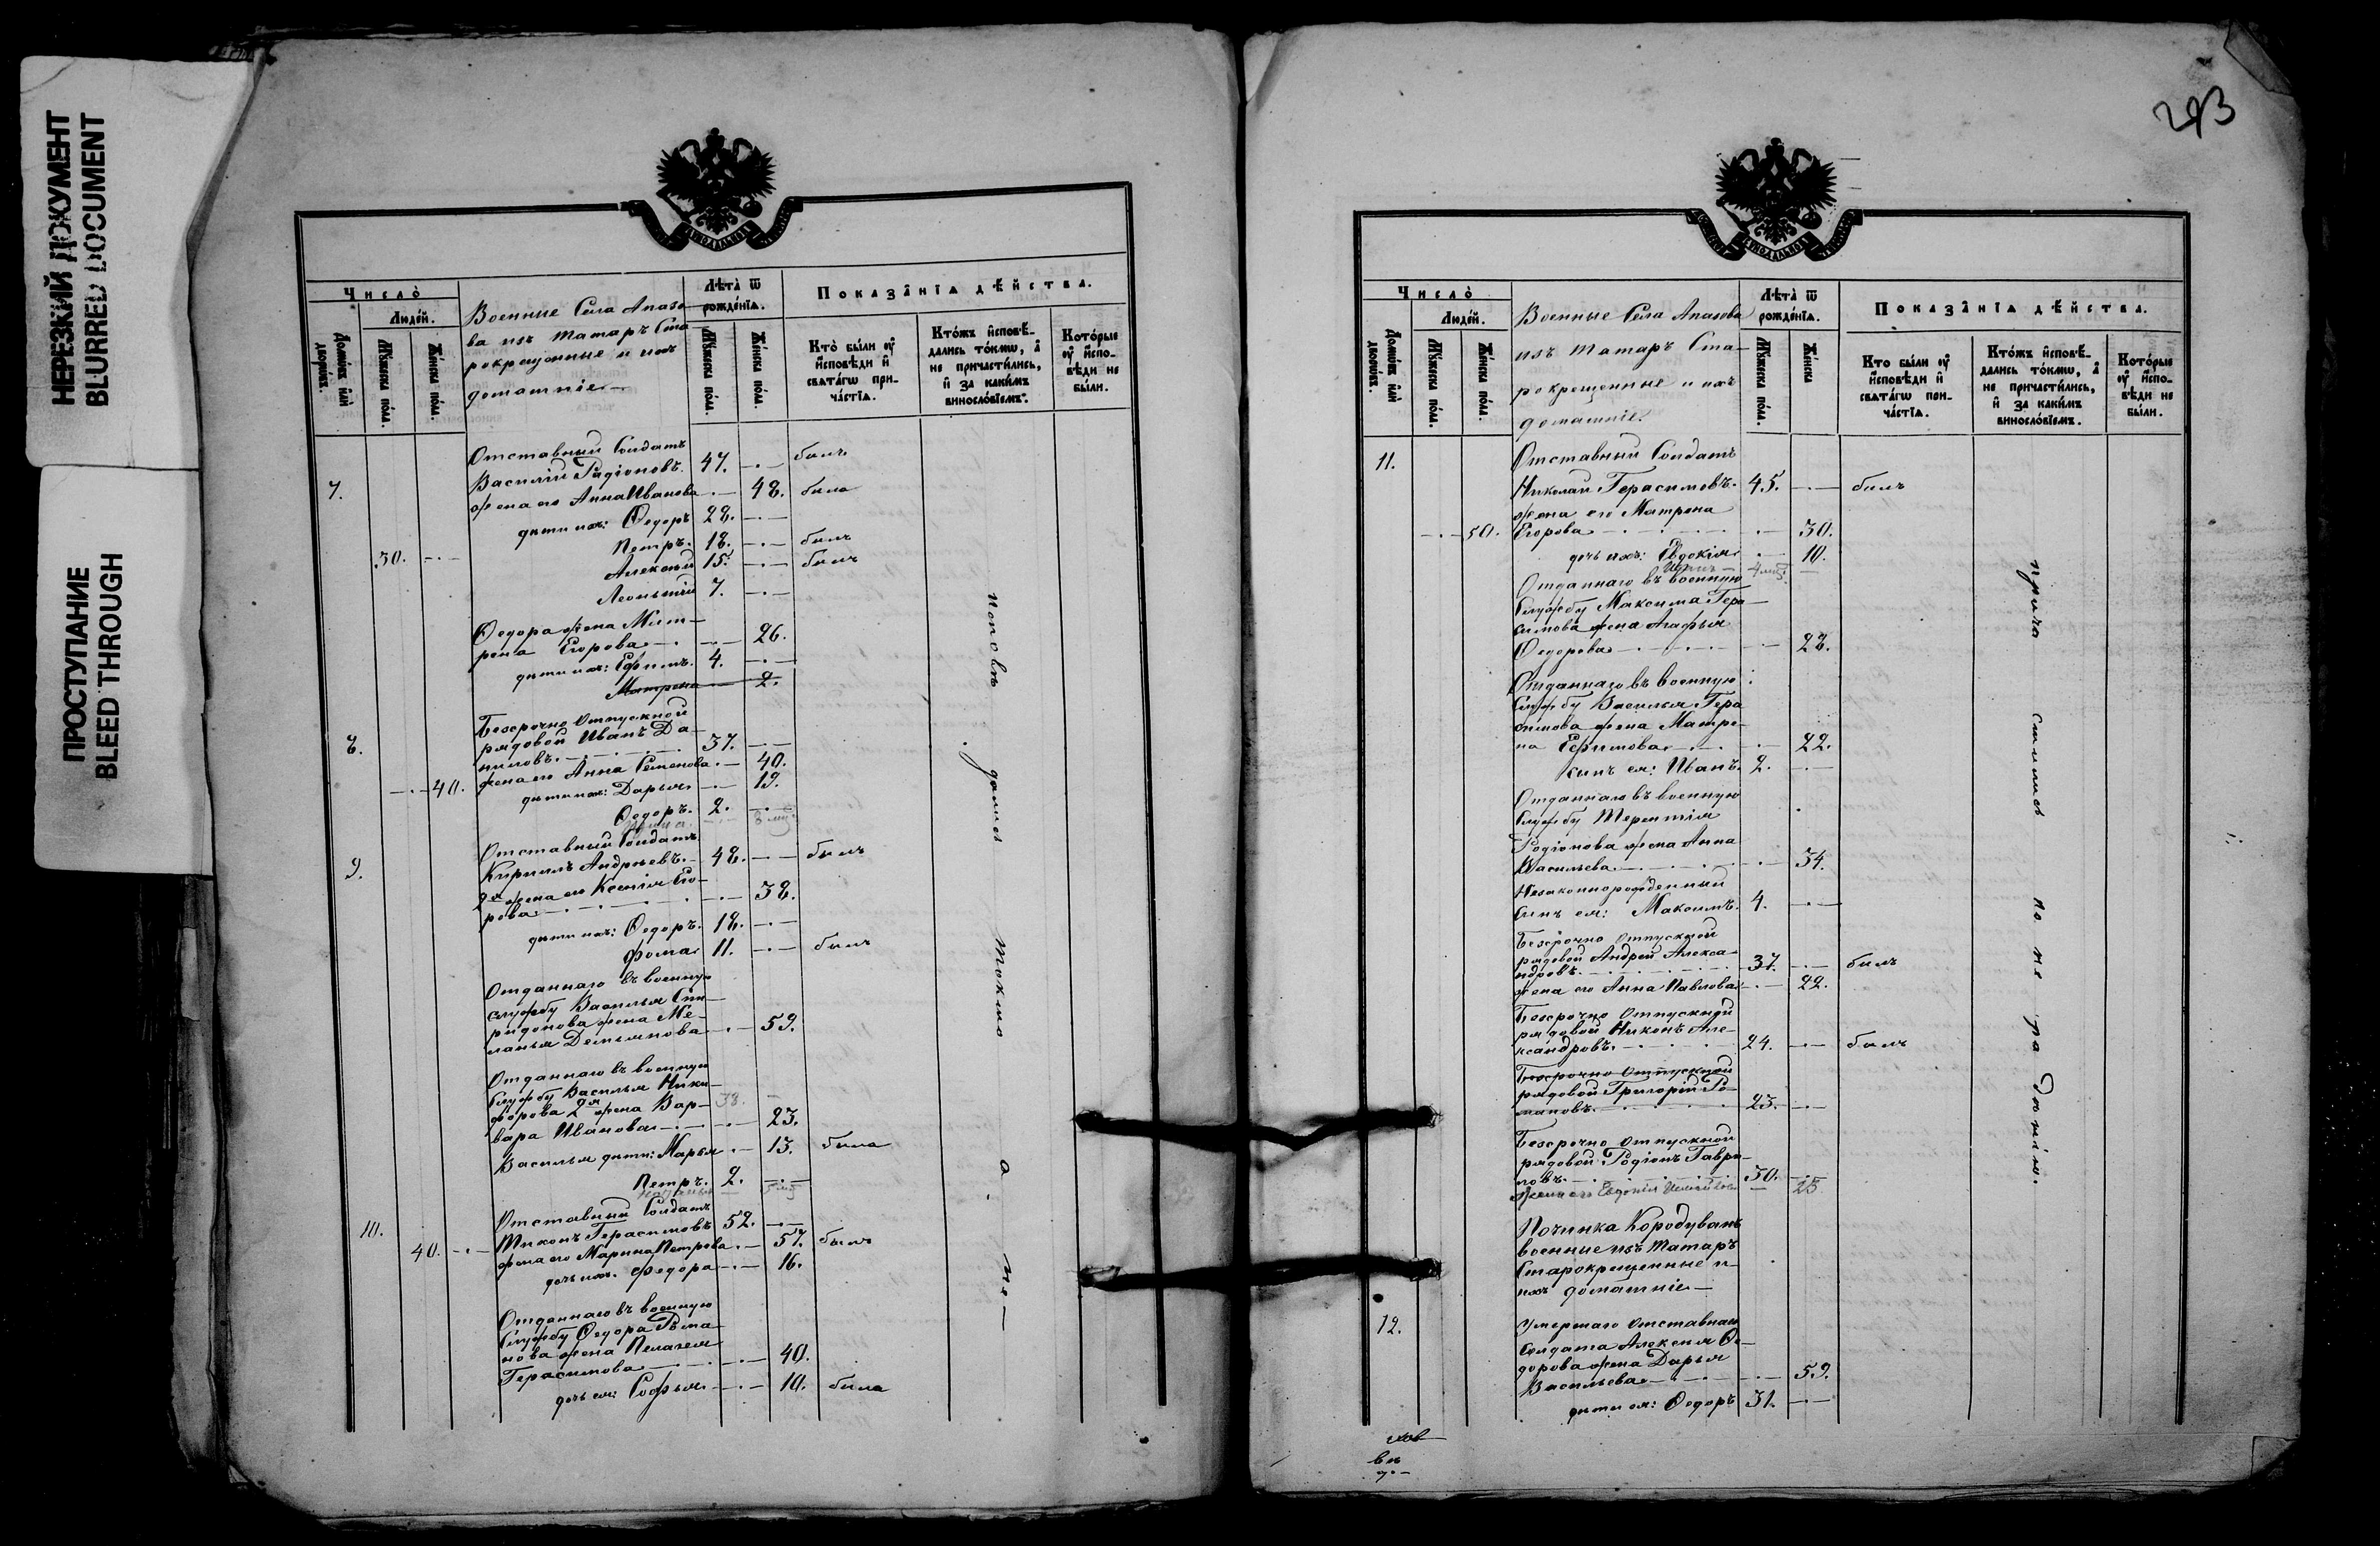 НЕРЕЗКИЙ ДОКУМЕНТ
BLURRED DOCUMENT
ПРОСТУПАНИЕ
BLEED THROUGH
Число̀
Людей.
Домώвъ или дворώвъ.
Мꙋжеска пола.
Женска пола.
Военные Села Апазо-
ва изъ татаръ Ста
рокрещенные и ихъ
домашніе
Лѣта ѿ
рождєнїѧ.
Мꙋжеска пола.
Женска пола.
Показанїѧ дѣйства.
Кто были ᲂу҆
исповѣди и
свѧтагѡ при-
частїѧ.
Ктожъ исповѣ-
дались токмѡ, а
не причастились,
и за какимъ
винословїемъ.
Которые
ᲂу҆ испо-
вѣди не
были.
Отставный Солдатъ
7. Василій Радіоновъ. 47. былъ
жена его Анна Иванова 48. была
дѣти ихъ: Ѳедоръ 28.
Петръ. 18. былъ
30. Алексѣй 15. былъ
Леонтій 7.
Ѳедора жена Мат-
рена Егорова 26.
дѣти ихъ: Ефимъ. 4.
Матрена 2.
Безсрочно отпускной
8. рядовой Иванъ Да-
ниловъ. 37.
жена его Анна Семенова. 40.
40. дѣти ихъ: Дарья 19.
Ѳедоръ. 2.
Отставный Солдатъ
9. Кириллъ Андреевъ. 48. былъ
2я жена его Ксенія Его-
рова 38.
дѣти ихъ: Ѳедоръ. 18.
Фома 11. былъ
Отданнаго въ военную
службу Василья Спи-
ридонова жена Ме-
ланья Демьянова 59.
Отданнаго въ военную
службу Василья Ники-
форова 2я жена Вар- 38.
вара Иванова 23.
Василья дѣти: Марья 13. была
Петръ. 2.
10. Отставный Солдатъ
40. Тихонъ Герасимовъ 52.
жена его Марина Петрова 57. былъ
дочь ихъ. Федора 16.
Отданнаго въ военную
службу Ѳедора Рома-
нова жена Пелагея
Герасимова 40.
дочь ея: Софья 10. была
исповѣ дались токмо а не
293
Число̀
Людей.
Домώвъ или дворώвъ.
Мꙋжеска пола.
Женска пола.
Военные Села Апазова
изъ татаръ Ста-
рокрещенные и ихъ
домашніе
Лѣта ѿ
рождєнїѧ.
Мꙋжеска пола.
Женска
Показанїѧ дѣйства.
Кто были ᲂу҆
исповѣди и
свѧтагѡ при-
частїѧ.
Ктожъ исповѣ-
дались токмѡ, а
не причастились,
и за какимъ
винословїемъ.
Которые
ᲂу҆ испо-
вѣди не
были.
11. Отставный Солдатъ
Николай Герасимовъ. 45. былъ
жена его Матрона
50. Егорова 30.
дочь ихъ: Евдокія 10.
Отданнаго въ военную
службу Максима Гера-
симова жена Агафья
Ѳедорова 28.
Отданнаго въ военную
службу Василья Гера
симова жена Матре-
на Ефимова 22.
сынъ ея: Иванъ. 2.
Отданнаго въ военную
службу Терентія
Родіонова жена Анна
Васильева 34.
Незаконнорожденный
сынъ ея: Максимъ. 4.
Безсрочно отпускной
рядовой Андрей Алекса-
ндровъ. 37. былъ
жена его Анна Павлова 22.
Безсрочно отпускной
рядовой Никонъ Але-
ксандровъ. 24. былъ
Безсрочно отпускной
рядовой Григорій Ро-
мановъ. 23.
Безсрочно отпускной
рядовой Родіонъ Гаври-
ловъ. 30.
жена его Евдокія 25
Починка Кородуванъ
военные изъ татаръ
Старокрещенные и
ихъ домашніе
12. Умершаго отставнаго
Солдата Алексѣя Ѳе-
дорова жена Дарья
Васильева 59.
дѣти ея: Ѳедоръ 31.
прича стились по не ра дѣнію.